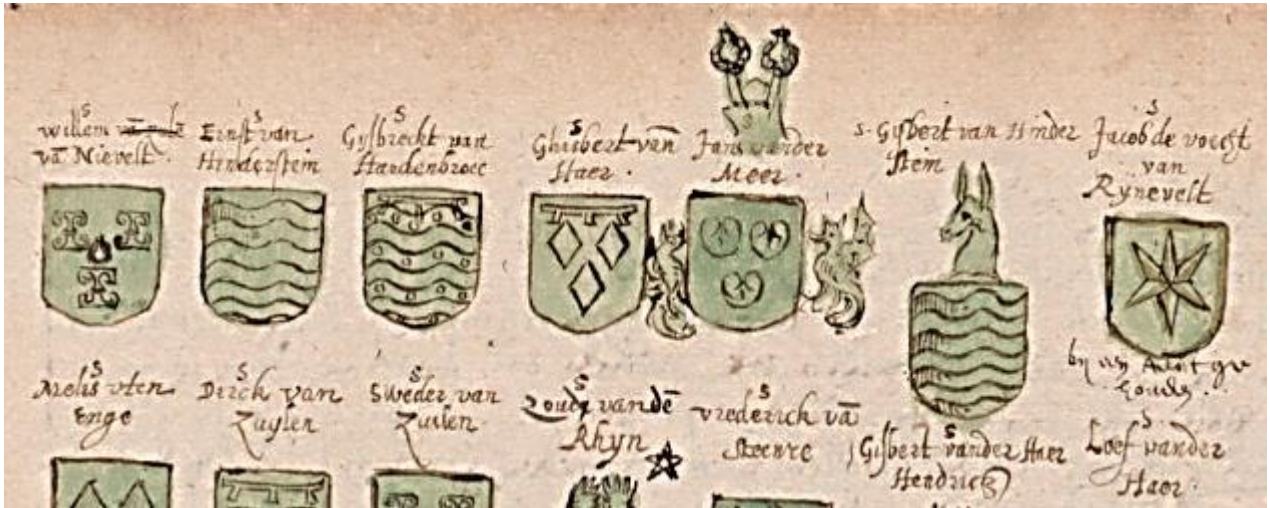 S
willem
vā Nievelt.
S
Ernst van
Hinderstein
S
Gijsbreckt van
Hardenbroec
S
Ghisbert van
Haer.
S
Jans vander
Meer.
S. Gisbert van Hinder
Stein
S
Jacob de voecht
van
Rynevelt
S
Melis vten
Enge
S
Dirck van
Zuylen
S
Sweder van
Zuilen
S
vandē
Rhyn
S
vrederick vā
S
Gisbert vander Haer
Hendricz)
S
Loef vander
Haer.